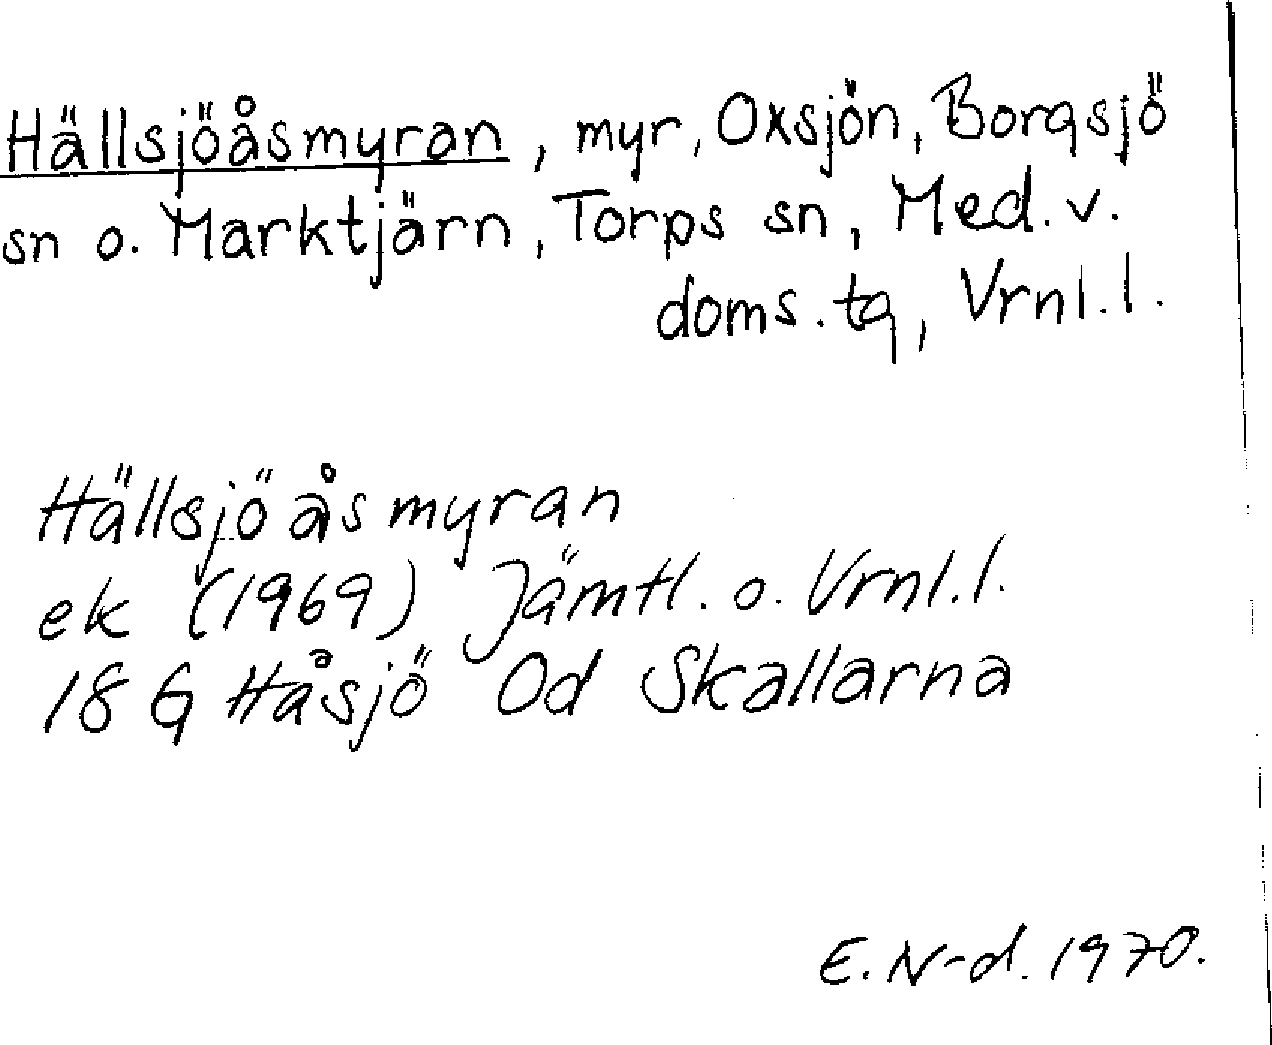 Hällsjöåsmyran, myr, Oxsjön, Borgsjö
sn o. Marktjärn, Torps sn, Med. v.
doms. tg, Vrnl. l.
Hällsjöåsmyran
ek (1969) Jämtl. o. Vrnl. l.
18 G Håsjö Od Skallarna
E. N-d. 1970.